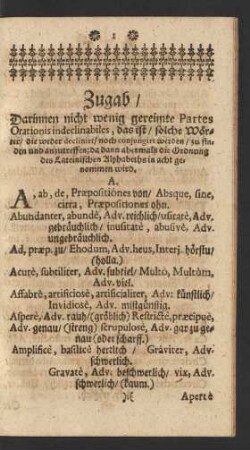 1
Zugab /
Darinnen nicht wenig gereimte Partes
Orationis indeclinabiles, das ist / solche Wör-
ter / die weder decliniert / noch conjungirt werden / zu fin-
den und anzutreffen; da dann abermals die Ordnung
des Lateinischen Alphabeths in acht ge-
nommen wird.
A.
A, ab, de, Præpositiónes von / Absque, sine,
citra, Præpositiones ohn.
Abundanter, abundè, Adv. reichlich / usitatè, Adv.
gebräuchlich / inusitatè, abusivè, Adv.
ungebräuchlich.
Ad, præp. zu / Ehodum, Adv. heus, Interj. hörstu /
(holla.)
Acutè, subtiliter, Adv. subtiel / Multò, Multùm,
Adv. viel.
Affabrè, artificiosè, artificialiter, Adv. künstlich /
Invidiosè, Adv. mißgünstig.
Asperè, Adv. rauh / (gröblich) Restrictè, præcipuè,
Adv. genau / (streng) scrupulosè, Adv. gar zu ge-
nau (oder scharff.)
Amplificè, basilicè herrlich / Gràviter, Adv.
schwerlich.
Gravatè, Adv. beschwerlich / vix, Adv.
schwerlich / (kaum.)
Apertè